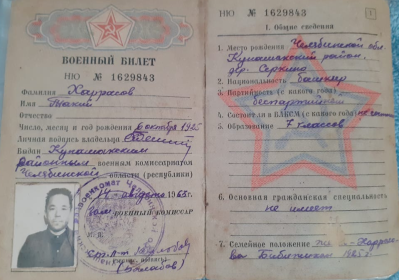 ВОЕННЫЙ БИЛЕТ
НЮ № 1629843
Фамилия Харрасов
Имя
Отчество
Число, месяц и год рождения 6 октября 1935
Личная подпись владельца
Выдан Кунашакским
районным военным комиссариатом
Челябинской области (республики)
14 августа 1965 г.
военный комиссар
НЮ № 1629843
1
I. Общие сведения
1. Место рождения Челябинской обл.
Кунашакский район,
дер. Серкино
2. Национальность башкир
3. Партийность (с какого года)
беспартийный
4. Состоит ли в ВЛКСМ (с какого года) не состоит
5. Образование 7 классов
6. Основная гражданская специальность
не имеет
7. Семейное положение
1965 г.